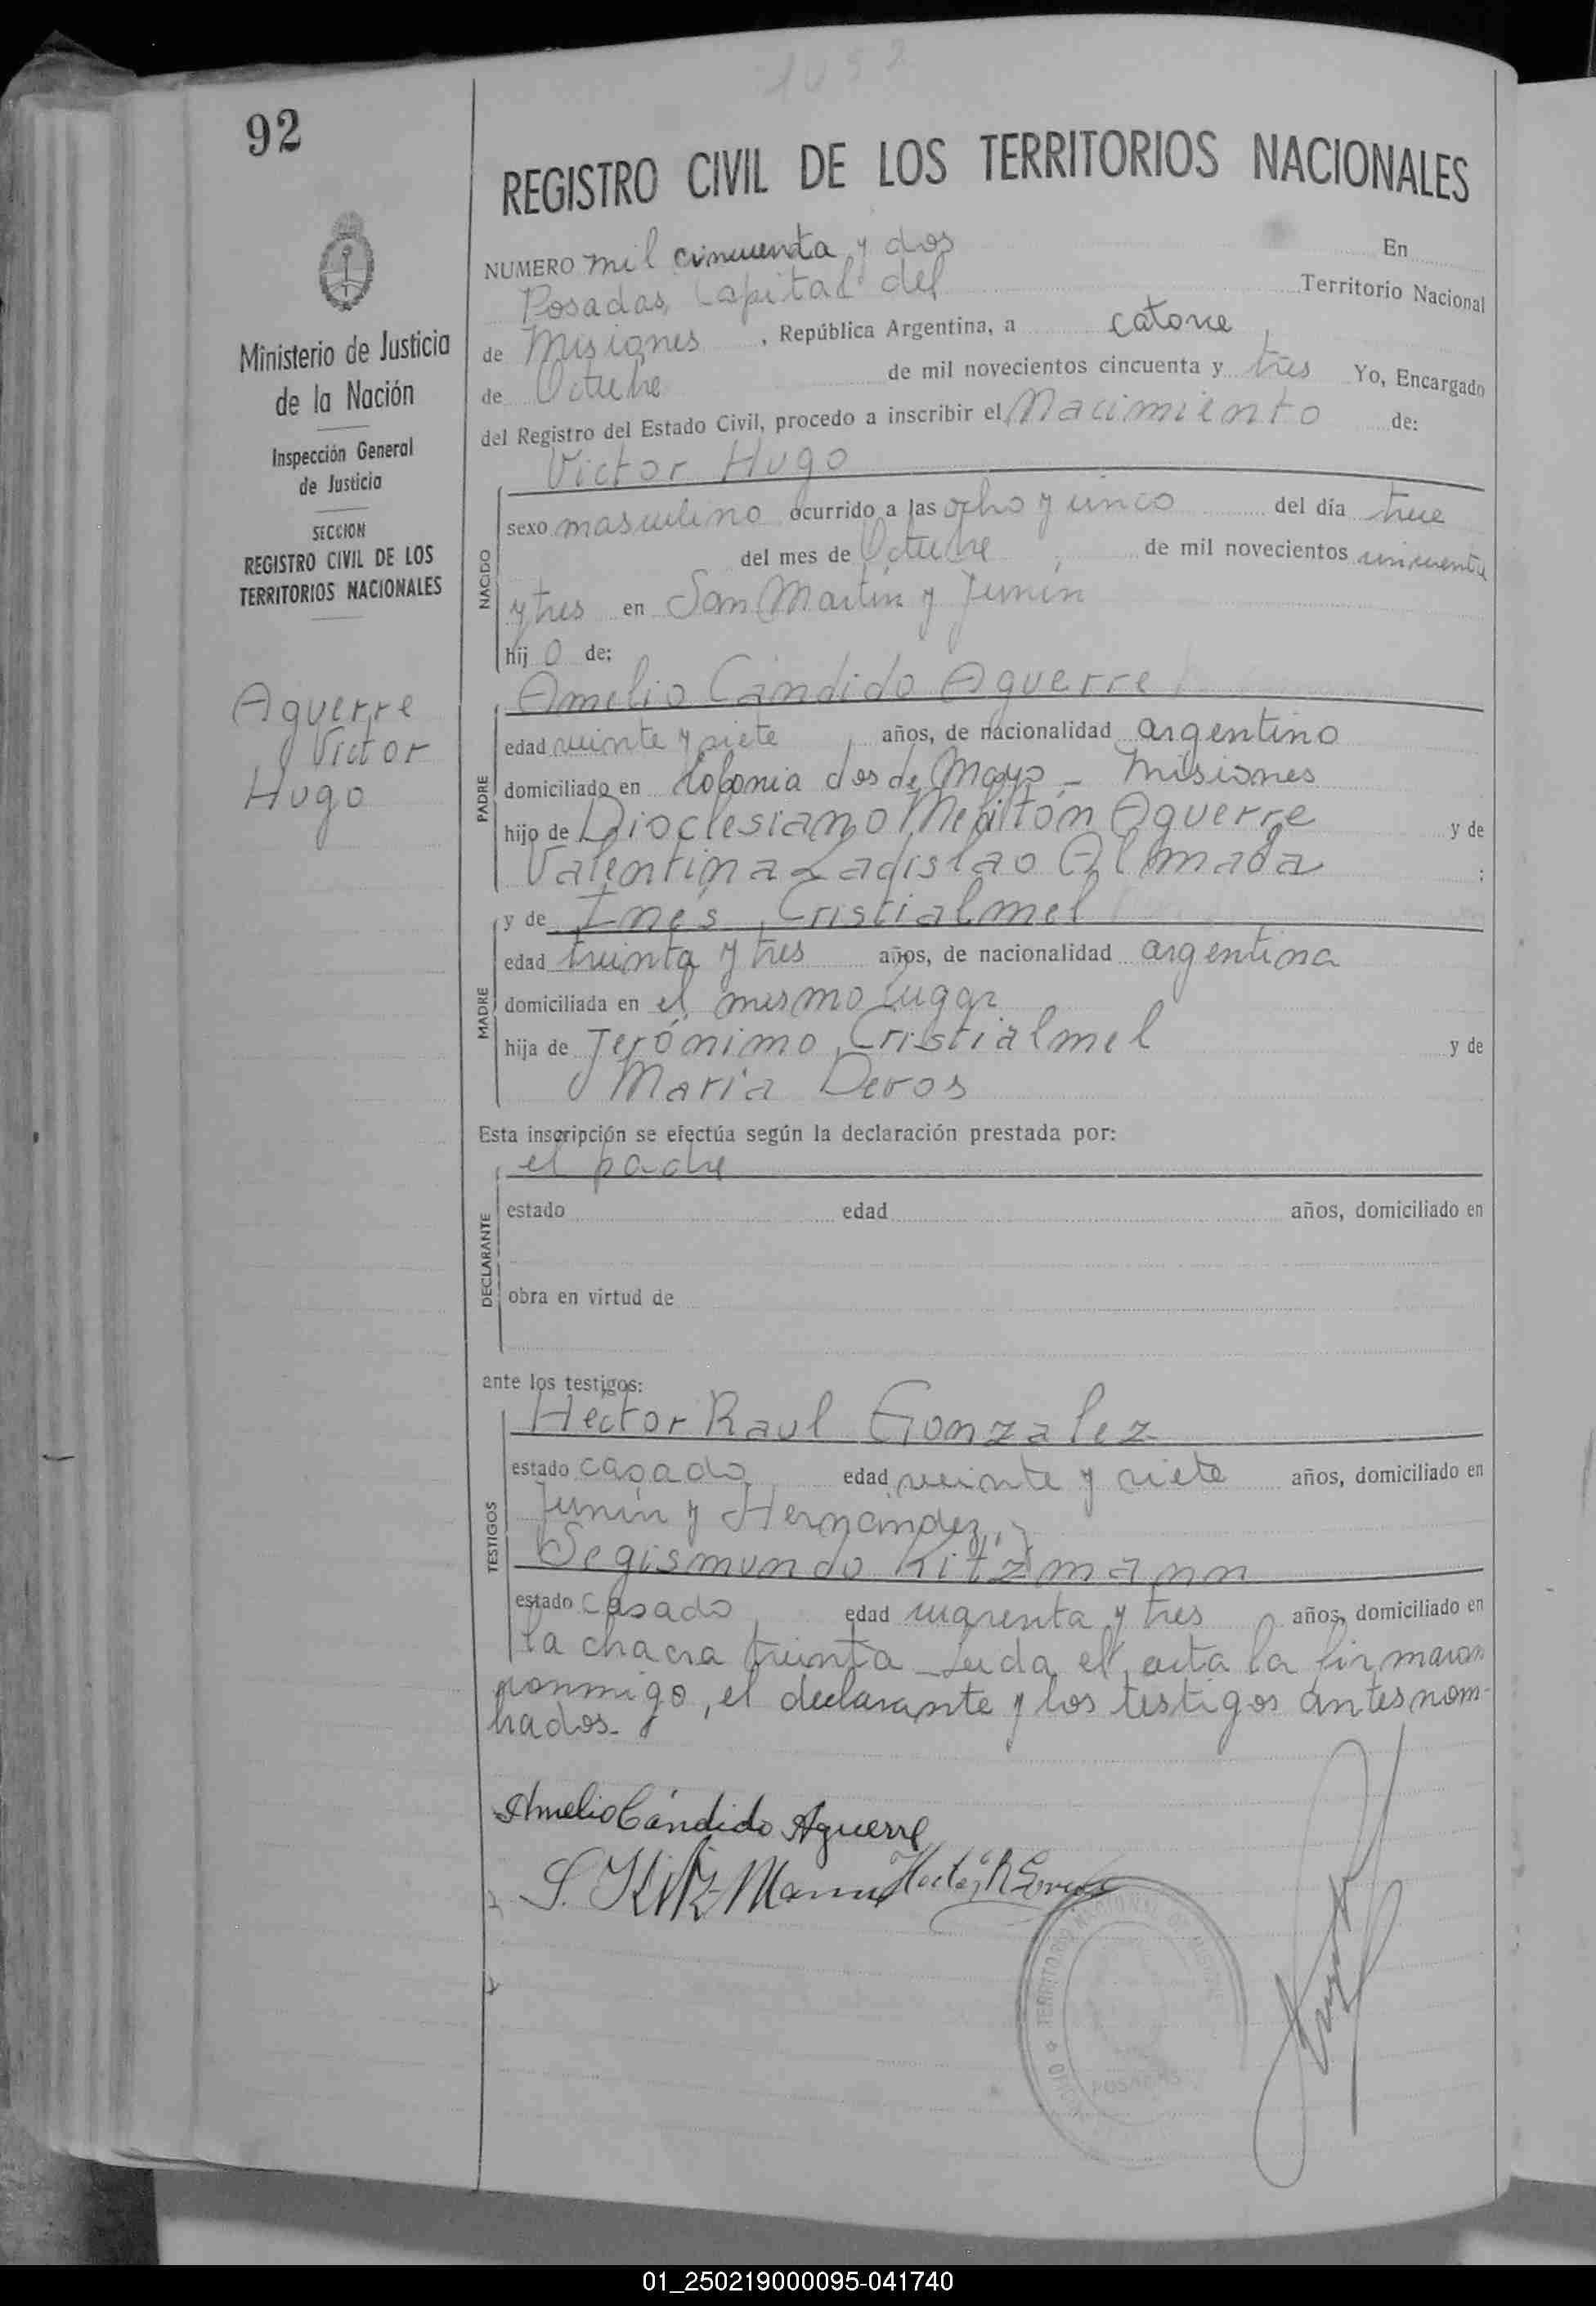 1052
92
REGISTRO CIVIL DE LOS TERRITORIOS NACIONALES
Ministerio de Justicia
de la Nación
Inspección General
de Justicia
SECCION
REGISTRO CIVIL DE LOS
TERRITORIOS NACIONALES
Aguerre
Victor
Hugo
NUMERO mil cincuenta y dos En
Posadas, Capital del Territorio Nacional
de Misiones, República Argentina, a catorce
de Octubre de mil novecientos cincuenta y tres Yo, Encargado
del Registro del Estado Civil, procedo a inscribir el Nacimiento de:
Victor Hugo
NACIDO
sexo masculino ocurrido a las ocho y cinco del día trece
del mes de Octubre de mil novecientos cincuenta
y tres en San Martín y Junín
hij o de;
PADRE
Amelio Cándido Aguerre
edad veinte y siete años, de nacionalidad argentino
domiciliado en Colonia dos de Mayo - Misiones
hijo de Dioclesiano Melitón Aguerre y de
Valentina Ladislao Almada ;
MADRE
y de Inés Cristialmel
edad treinta y tres años, de nacionalidad argentina
domiciliada en el mismo lugar
hija de Jerónimo Cristialmel y de
Maria Deros
Esta inscripción se efectúa según la declaración prestada por:
el padre
DECLARANTE
estado edad años, domiciliado en
obra en virtud de
ante los testigos:
TESTIGOS
Hector Raul Gonzalez
estado casado edad veinte y siete años, domiciliado en
Junín y Hernández,
Segismundo Kitzmann
estado casado edad cuarenta y tres años, domiciliado en
la chacra treinta - Leida el acta la firmaron
conmigo, el declarante y los testigos antes nom-
brados.-
Amelio Cándido Aguerre
S. Kitz-Mann Hector R
TERRITORIO NACIONAL DE MISIONES
POSADAS
01_250219000095-041740